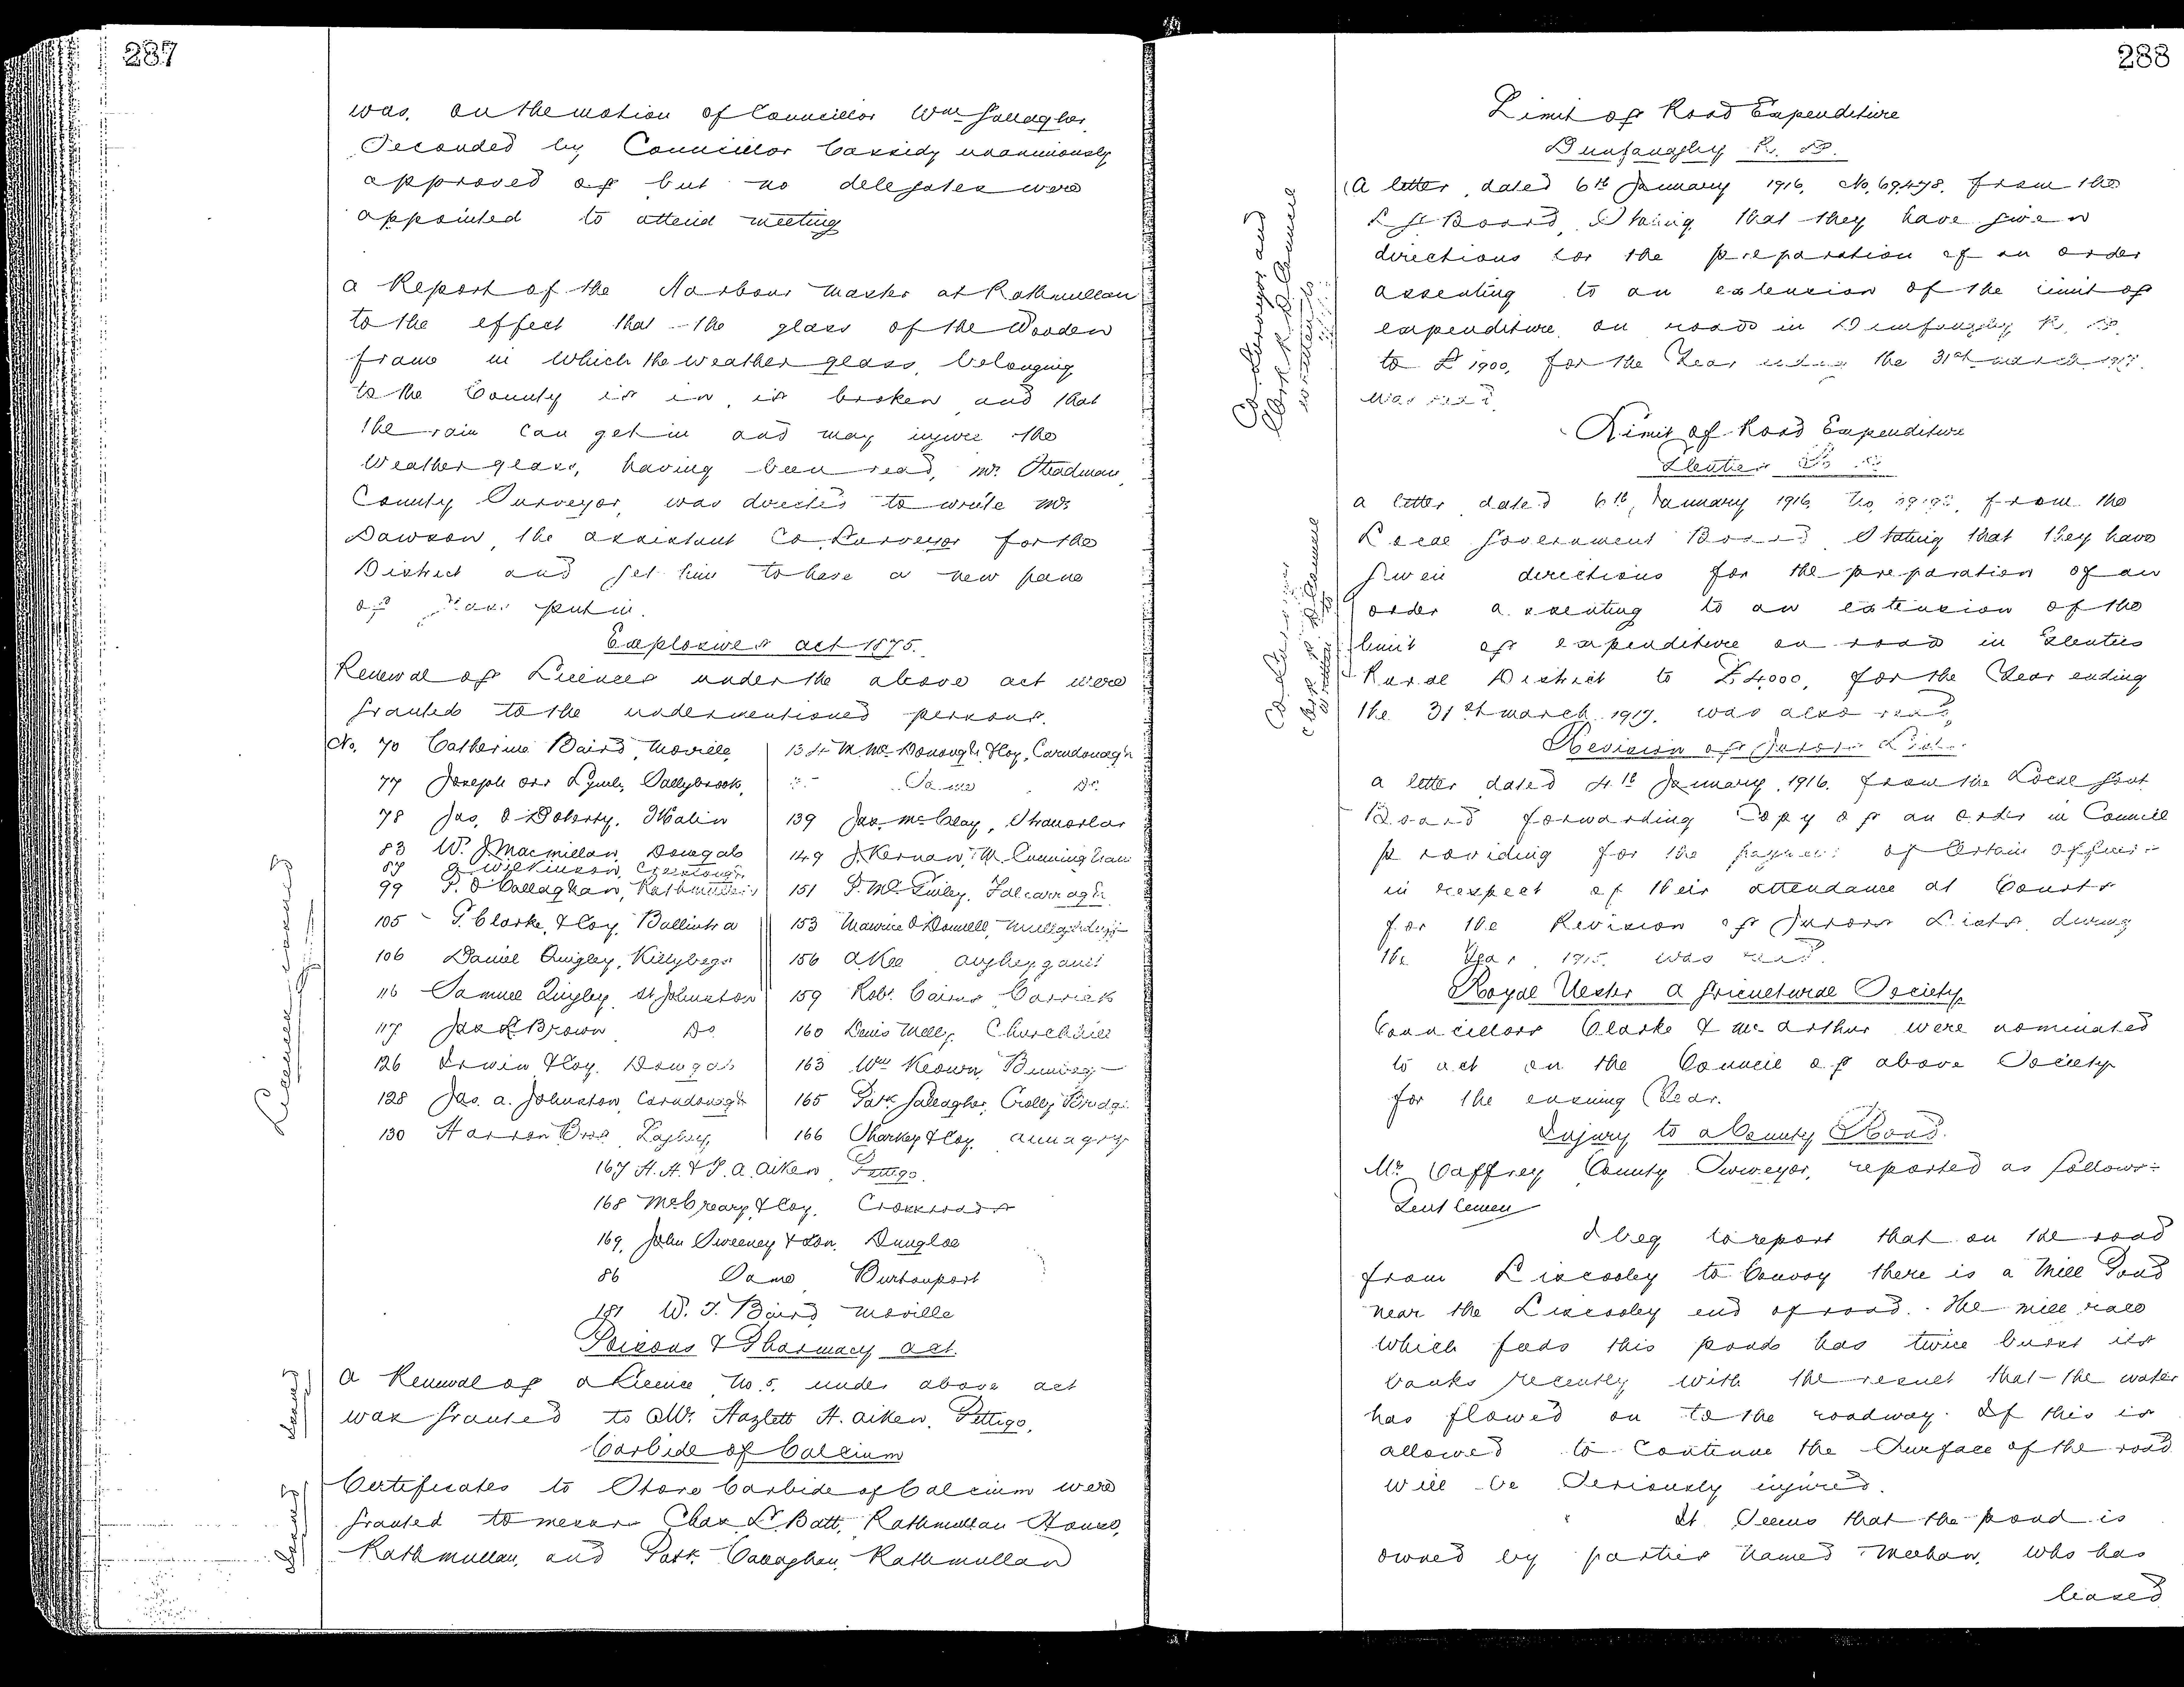 287
was, on the motion of Councillor Wm Gallagher,
Seconded by Councillor Cassidy unanimously
approved of but no delegates were
appointed to attend meeting
a Report of the Harbour Master at Rathmullan
to the effect that the glass of the Wooden
frame in which the weather glass, belonging
to the County is in, is broken and that
the rain can get in and may injure the
Weather glass, having been read, Mr. Steadman,
County Surveyor, was directed to write Mr
Dawson, the assistant Co. Surveyor for the
District and get him to have a new pane
of glass put in.
Explosives act 1875.
Renewal of Licences under the above act were
granted to the undermentioned persons.
No. 70 Catherine Baird, Moville,
77 Joseph Orr Lynch, Ballybrook,
78 Jas, O'Doherty, Malin
83 W. J. Macmillan, Donegal
Wilkinson,
99 P. O'Callaghan, Rathmullan
105 P. Clarke, & Coy, Ballintra
106 Daniel Quigley, Killybegs
116 Samuel Quigley, St Johnston
117 Jas Brown Do
126 Irwin & Coy. Donegal
128 Jas. a. Johnston, Carndonagh
130 Harron Bros Raphoe,
134 M. McDonough & Coy, Carndonagh
Same Do.
139 Jas. McClay, Stranorlar
149 J. Kernan, Mt. Cunningham
151 P. McGinley, Falcarragh
153 Maurice O'Donnell,
156 A Kee
159 Robt. Cairns Carrick
160 Denis Melly, Churchhill
163 Wm Keown, Bunbeg
165 Patk Gallagher, Crolly Bridge
166 Sharkey & Coy. annagry
167 H. A. & J. A. Aiken, Pettigo.
168 McCreary & Coy. Crossroads
169, John Sweeney & Son, Dungloe
86 Same Burtonport
181 W. J. Baird Moville
Poisons & Pharmacy act.
a Renewal of a Licence No. 5, under above act
was granted to Mr. Hazlett H. Aiken, Pettigo.
Carbide of Calcium
Certificates to Store Carbide of Calcium were
granted to messrs Chas. L. Batt, Rathmullan House,
Rathmullan, and Patk. Callaghan, Rathmullan
Licences issued
Issued
Issued
288
Limit of Road Expenditure
Dunfanaghy R. D.
A letter, dated 6th January 1916, No. 69,478, from the
L G Board, Stating that they have given
directions for the preparation of an order
assenting to an extension of the limit of
expenditure on roads in Dunfanaghy R. D.
to £1900, for the Year ending the 31st march 1917.
was read.
Limit of Road Expenditure
Glenties R. D.
a letter dated 6th, January 1916, No. from the
Local Government Board Stating that they have
given directions for the preparation of an
order assenting to an extension of the
limit of expenditure on roads in Glenties
Rural District to £4,000, for the Year ending
the 31st march 1917. was also read,
Revision of Jurors Lists.
a letter dated 4th January, 1916. from the Local Govt
Board forwarding Copy of an order in Council
providing for the payment of Certain officers
in respect of their attendance at Courts
for the Revision of Jurors Lists during
the Year, 1915. was read.
Royal Ulster Agricultural Society
Councillors Clarke & McArthur were nominated
to act on the Council of above Society
for the ensuing Year.
Injury to a County Road.
Mr. Caffrey County Surveyor, reported as follows:-
Gentlemen
I beg to report that on the road
from Liscooley to Convoy there is a Mill Pond
near the Liscooley end of road. The mill race
which feeds this pond has twice burst its
banks recently with the result that the water
has flowed on to the roadway. If this is
allowed to Continue the Surface of the road
will be Seriously injured.
It Seems that the pond is
owned by parties named Meehan, who has
leased
Co Surveyor and
Clerk R. D. Council
written to
Co Surveyor
Clerk R. D. Council
written to